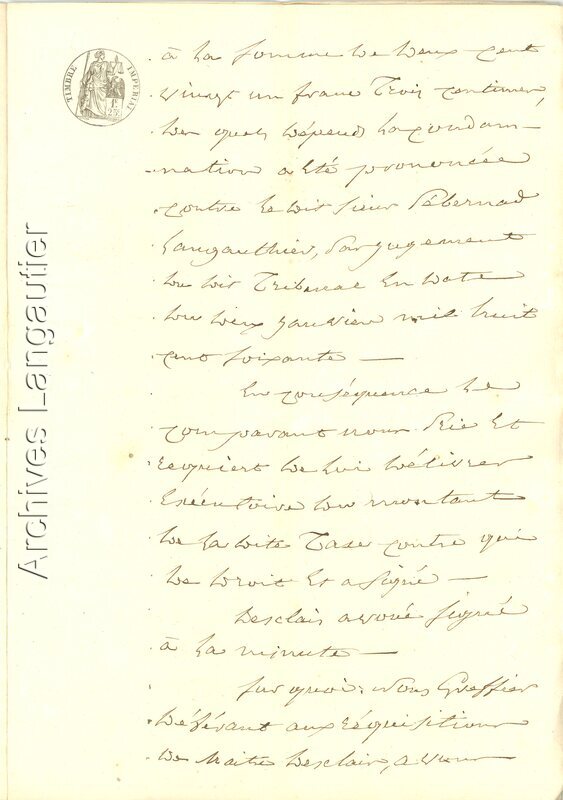 TIMBRE IMPERIAL
à la somme de deux cent
vingt un franc Trois centimes,
des quels dépens la condam-
nation a été prononcée
contre le dit sieur Pébernad
Langauthier, par jugement
du dit Tribunal en date
du deux janvier mil huit
cent soixante —
En conséquence le
comparant nous prie et
requiert de lui délivrer
exécutoire du montant
de la dite Taxe contre qui
de droit et a signé —
Desclair avoué signé
à la minute —
sur quoi; nous Greffier
déférant aux réquisitions
de Maitre Desclair, avons
Archives Langautier